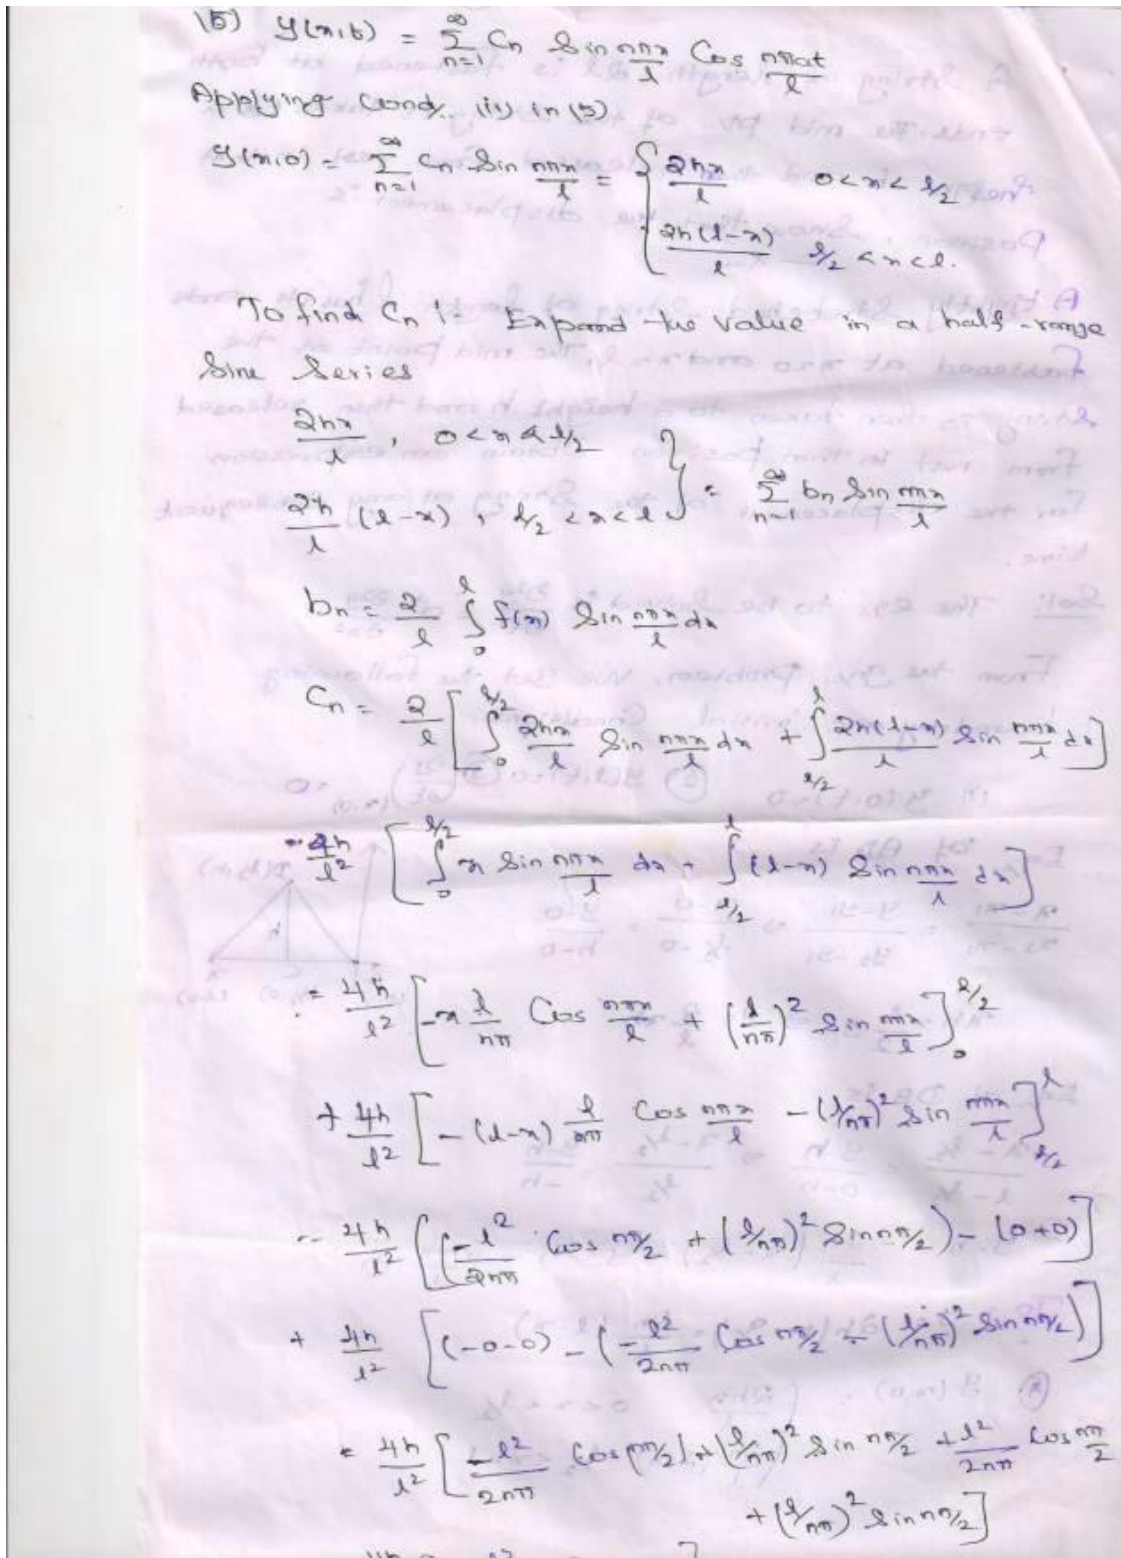 (5) y(x,t) = ∞ Σ n=1 Cn Sin nπx/l Cos nπat/l
Applying Cond. (iv) in (5)
y(x,0) = ∞ Σ n=1 Cn Sin nπx/l = { 2hx/l 0<x<l/2
2h(l-x)/l l/2<x<l.
To find Cn :- Expand the value in a half-range
Sine Series
2hx/l , 0<x<l/2
2h/l (l-x) , l/2<x<l } = ∞ Σ n=1 bn Sin nπx/l
bn = 2/l ∫₀^l f(x) Sin nπx/l dx
Cn = 2/l [ ∫₀^{l/2} 2hx/l Sin nπx/l dx + ∫_{l/2}^l 2h(l-x)/l Sin nπx/l dx ]
= 4h/l² [ ∫₀^{l/2} x Sin nπx/l dx + ∫_{l/2}^l (l-x) Sin nπx/l dx ]
= 4h/l² [ -x l/nπ Cos nπx/l + (l/nπ)² Sin nπx/l ]₀^{l/2}
+ 4h/l² [ -(l-x) l/nπ Cos nπx/l - (l/nπ)² Sin nπx/l ]_{l/2}^l
= 4h/l² [ (-l²/2nπ Cos nπ/2 + (l/nπ)² Sin nπ/2) - (0+0) ]
+ 4h/l² [ (-0-0) - (-l²/2nπ Cos nπ/2 - (l/nπ)² Sin nπ/2) ]
= 4h/l² [ -l²/2nπ Cos(nπ/2) + (l/nπ)² Sin nπ/2 + l²/2nπ Cos nπ/2
+ (l/nπ)² Sin nπ/2 ]